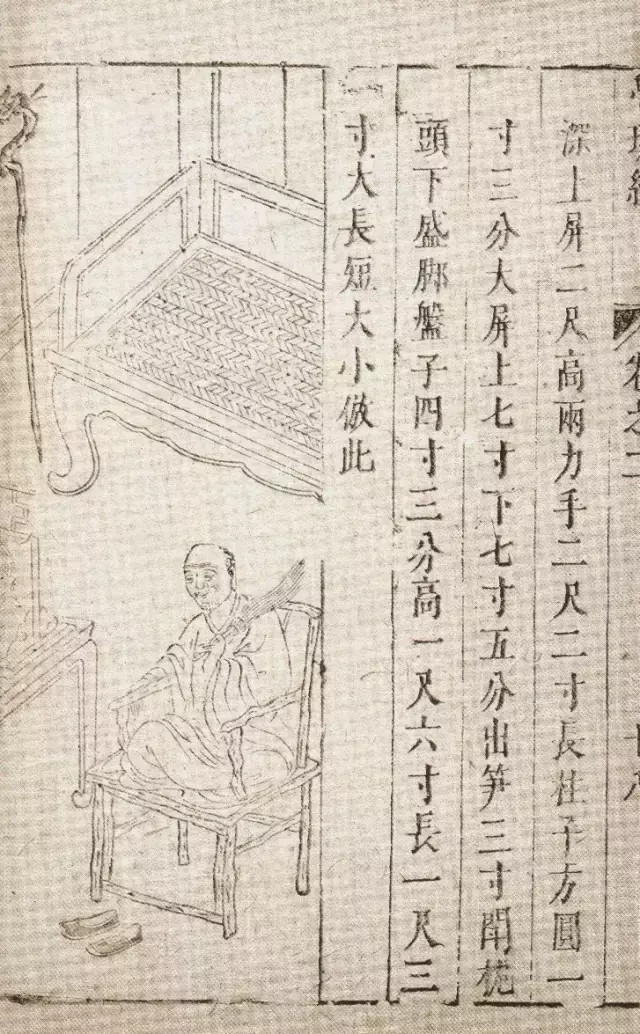 卷之二
深上屏二尺高兩力手二尺二寸長柱子方圓一
寸三分大屏上七寸下七寸五分出笋三寸閗枕
頭下盛脚盤子四寸三分高一尺六寸長一尺三
寸大長短大小倣此